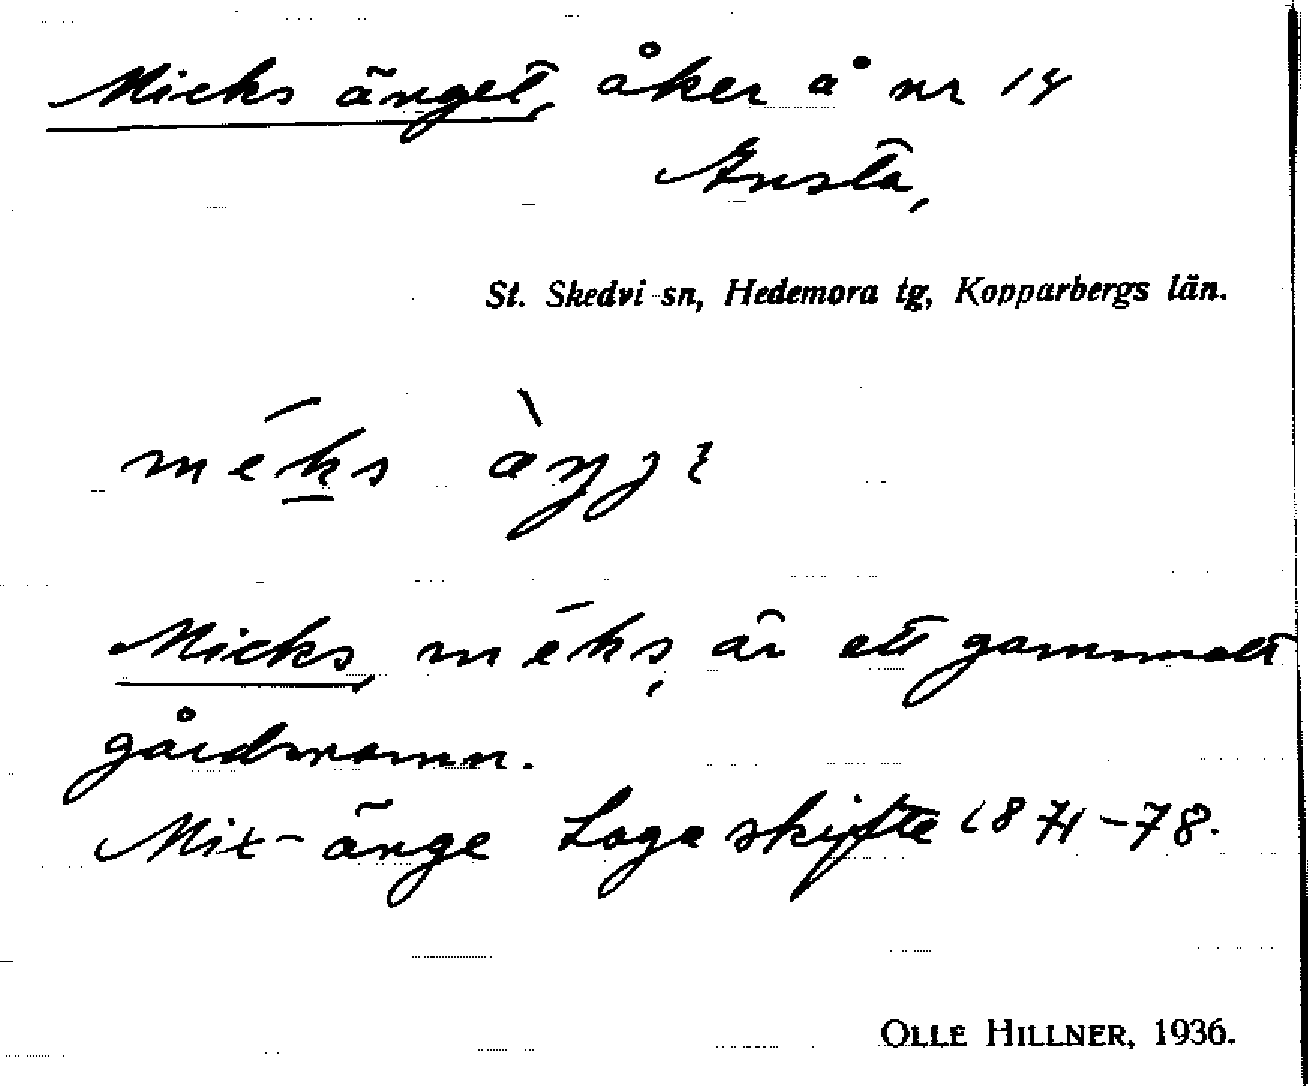 Micks änget, åker å nr 14
Ansta,
St. Skedvi sn, Hedemora tg, Kopparbergs län.
méks
Micks, méks, är ett gammalt
gårdsnamn.
Mix-änge Laga skifte 1871-78.
OLLE HILLNER, 1936.